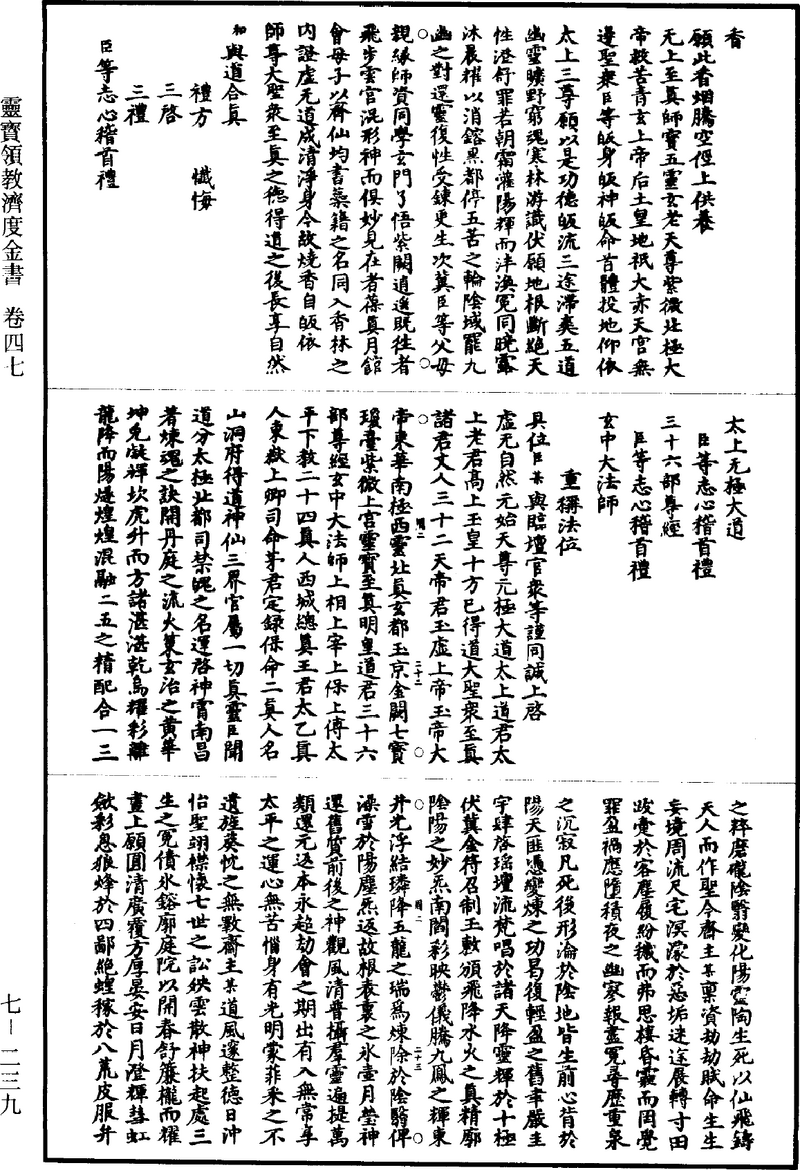 香
願此香烟騰空徑上供養
无上至真師寶五靈玄老天尊紫微北極大
帝救苦青玄上帝后土皇地祇大赤天宫無
邊聖衆臣等皈身皈神皈命首體投地仰依
太上三尊願以是功德皈流三途滯爽五道
幽靈曠野窮魂寒林游識伏願地根斷絶天
性澄舒罪若朝霜灌陽輝而泮渙冤同曉露
沐晨耀以消鎔黑都停五苦之輪陰域罷九
幽之對還靈復性受鍊更生次冀臣等父母
親緣師資同學玄門了悟紫闕逍遥既往者
飛步雲宫混形神而俱妙見在者葆真月館
會母子以齊仙均書蘂籍之名同入香林之
内證虚无道成清淨身今故燒香自皈依
師尊大聖衆至真之德得道之後長享自然
和與道合真
禮方　懺悔
三啓
三禮
臣等志心稽首禮
太上无極大道
臣等志心稽首禮
三十六部尊經
臣等志心稽首禮
玄中大法師
重稱法位
具位臣某與臨壇官衆等謹同誠上啓
虚无自然元始天尊无極大道太上道君太
上老君高上玉皇十方已得道大聖衆至真
諸君丈人三十二天帝君玉虚上帝玉帝大
帝東華南極西靈北真玄都玉京金闕七寶
瓊臺紫微上宫靈寶至真明皇道君三十六
部尊經玄中大法師上相上宰上保上傅太
平下教二十四真人西城總真王君太乙真
人東嶽上卿司命茅君定録保命二真人名
山洞府得道神仙三界官屬一切真靈臣聞
道分太極北都司禁魄之名運啓神霄南昌
著煉魂之訣開丹庭之流火藁玄冶之黄華
坤兔凝輝坎虎升而方諸湛湛乾烏耀彩離
龍降而陽燧煌煌混融二五之精配合一三
之粹磨礲陰翳變化陽靈陶生死以仙飛鑄
天人而作聖今齋主某稟資劫劫賦命生生
妄境周流尺宅溟濛於惡垢迷途展轉寸田
跋疐於客塵履紛穢而弗思棲昏霾而罔覺
罪盈禍應墮積夜之幽寥報盡冤尋歷重泉
之沉寂凡死後形淪於陰地皆生前心背於
陽天匪憑變煉之功曷復輕盈之舊聿嚴圭
宇肆啓瑶壇流梵唱於諸天降靈輝於十極
伏冀金符召制玉敕頒飛降水火之真精廓
陰陽之妙炁南閶彩映鬱儀騰九鳳之輝東
井光浮結璘降五龍之瑞爲煉除於陰翳俾
澡雪於陽塵炁返故根表裏之氷壺月瑩神
還舊質前後之神觀風清普攝羣靈遍提萬
類還元返本永超劫會之期出有入無常享
太平之運心無苦惱身有光明蒙菲釆之不
遺旌葵忱之無斁齋主某道風邃整德日沖
怡聖翊襟懷七世之訟鋏雲散神扶起處三
生之冤債氷鎔廓庭院以開春舒簾櫳而耀
晝上願圓清廣覆方厚晏安日月澄輝彗虹
斂彩息狼烽於四鄙絶蝗稼於八荒皮服卉
靈寶領教濟度金書　卷四七
七—二三九